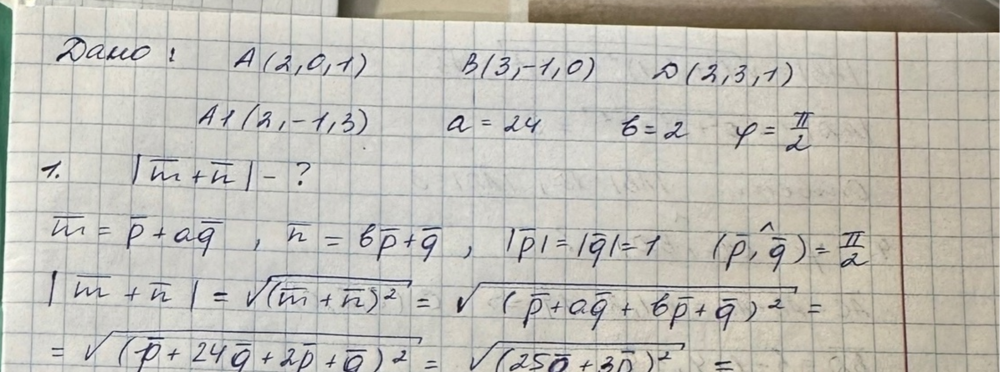 Дано: A(2,0,1) B(3,-1,0) D(2,3,1)
A1(2,-1,3) a = 24 b = 2 φ = π/2
1. |m̅ + n̅| - ?
m̅ = p̅ + aq̅ , n̅ = bp̅ + q̅ , |p̅| = |q̅| = 1 (p̅,^q̅) = π/2
|m̅ + n̅| = √(m̅ + n̅)² = √(p̅ + aq̅ + bp̅ + q̅)² =
= √(p̅ + 24q̅ + 2p̅ + q̅)² = √(25q̅ + 3p̅)² =